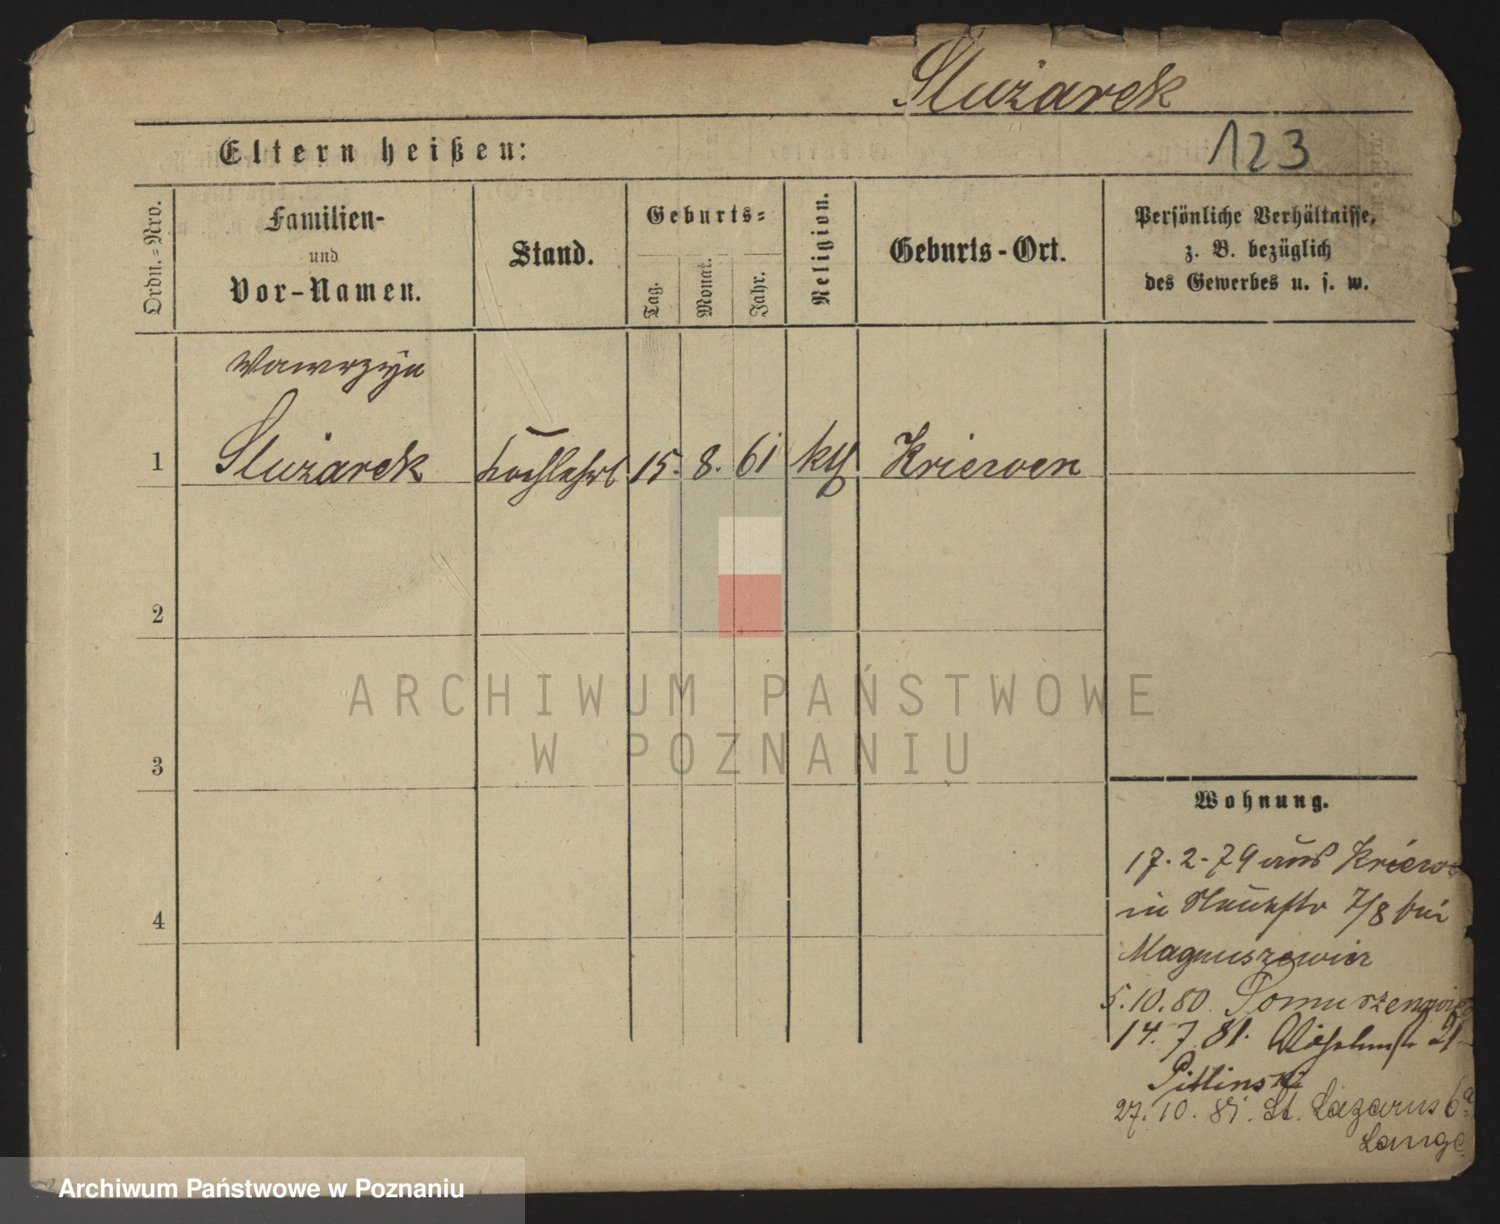 Służarek
123
Eltern heißen:
Ordn.-Nro.
Familien-
und
Vor-Namen.
Stand.
Geburts-
Tag.
Monat.
Jahr.
Religion.
Geburts-Ort.
Persönliche Verhältnisse,
z. B. bezüglich
des Gewerbes u. s. w.
Wawrzyn
1 Służarek Kochlehrl 15. 8. 61 kth Kriewen
2
3
4
Wohnung.
17.2.79 aus Kriewe
in 7/8 bei
Magnuszewicz
5.10.80.
14.7.81. 21
Pitlinski
27.10.81. St. Lazarus 6a
Lange
ARCHIWUM PAŃSTWOWE
W POZNANIU
Archiwum Państwowe w Poznaniu